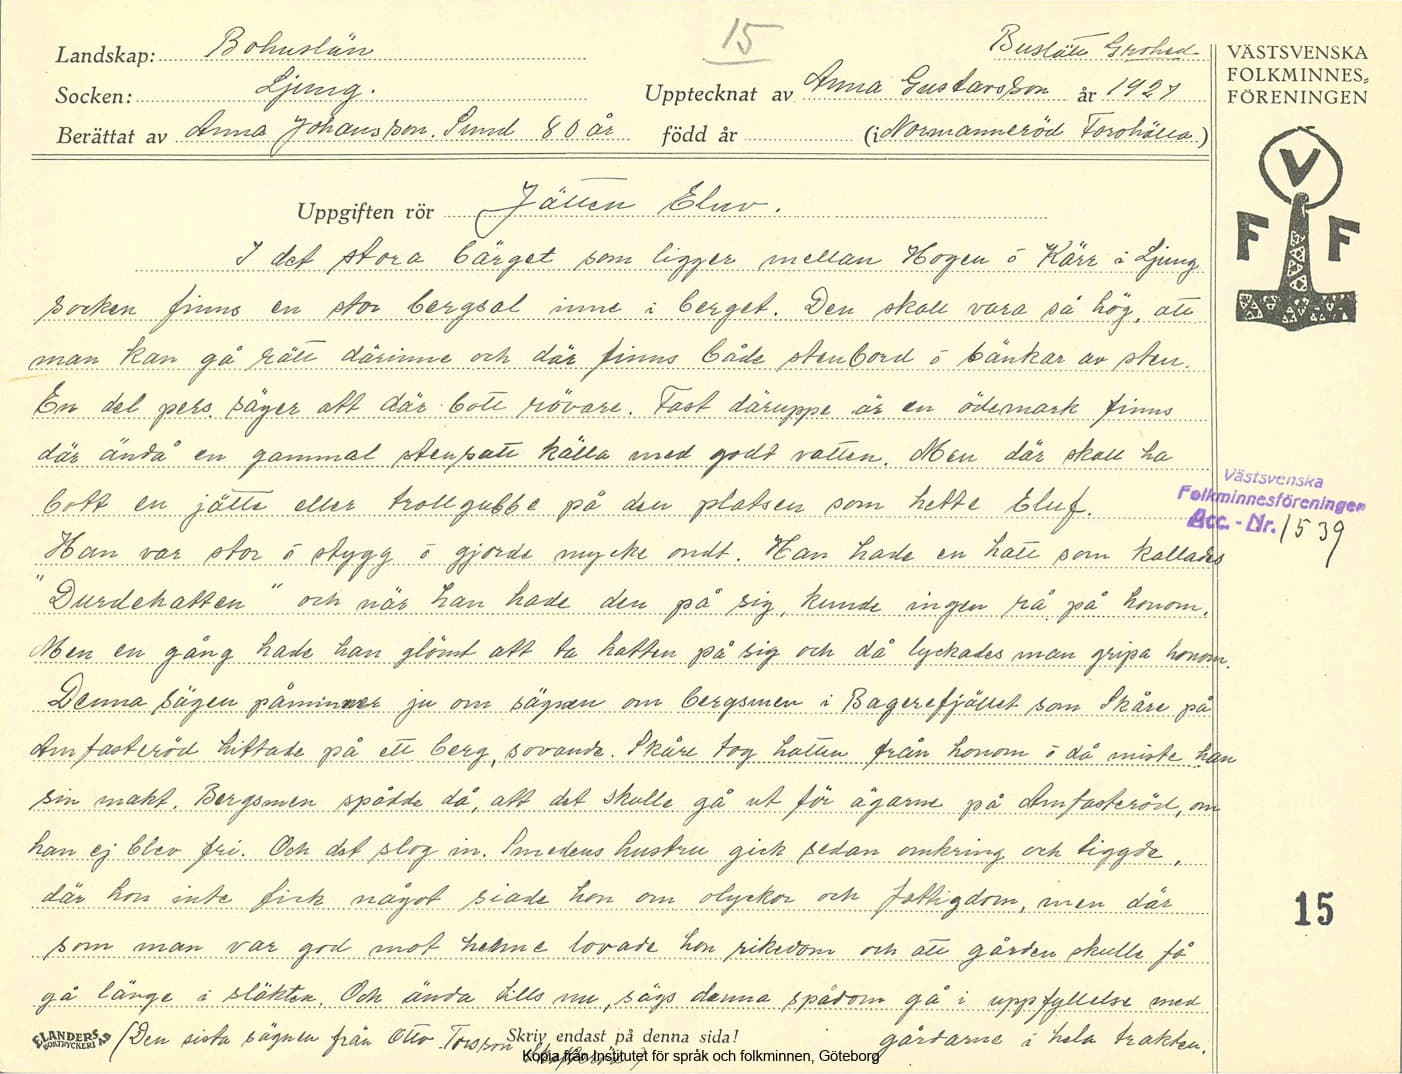 15
Landskap: Bohuslän
Buslätt Grohed
Socken: Ljung.
Upptecknat av Anna Gustavsson år 1927
Berättat av Anna Johansson. Sund 80 år född år (i Normanneröd Forshälla)
VÄSTSVENSKA
FOLKMINNES-
FÖRENINGEN
V
F F
Uppgiften rör Jätten Eluv.
I det stora bärget som ligger mellan Hogen o Kärr i Ljung
socken finns en stor bergsal inne i berget. Den skall vara så hög, att
man kan gå rätt därinne och där finns både stenbord o bänkar av sten.
En del pers. säger att där bott rövare. Fast däruppe är en ödemark finns
där ändå en gammal stensatt källa med godt vatten. Men där skall ha
bott en jätte eller trollgubbe på den platsen som hette Eluf.
Han var stor o stygg o gjorde mycke ondt. Han hade en hatt som kallades
"Durdehatten" och när han hade den på sig, kunde ingen rå på honom.
Men en gång hade han glömt att ta hatten på sig och då lyckades man gripa honom.
Denna sägen påminner ju om sägnen om bergsmen i Bagerefjället som Skåre på
Amfasteröd hittade på ett berg, sovande. Skåre tog hatten från honom o då miste han
sin makt. Bergsmen spådde då, att det skulle gå ut för ägarne på Amfasteröd, om
han ej blev fri. Och det slog in. Smedens hustru gick sedan omkring och tiggde,
där hon inte fick något siade hon om olyckor och fattigdom, men där
som man var god mot henne lovade hon rikedom och att gården skulle få
gå länge i släkten. Och ända tills nu, sägs denna spådom gå i uppfyllelse med
gårdarne i hela trakten.
(Den sista sägnen från Otto Torsson
Västsvenska
Folkminnesföreningen
Acc. - Nr. 1539
15
ELANDERS
BOKTRYCKERI AB
Skriv endast på denna sida!
Kopia från Institutet för språk och folkminnen, Göteborg